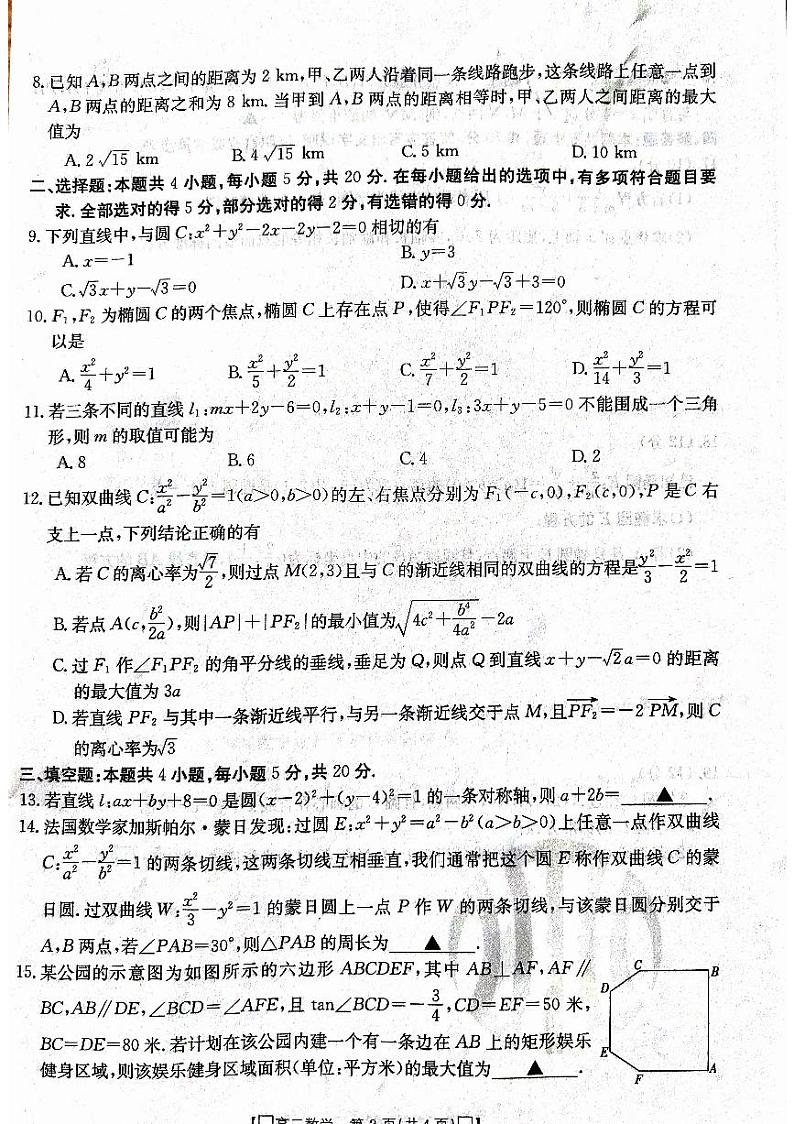 8.已知A,B两点之间的距离为2 km,甲、乙两人沿着同一条线路跑步,这条线路上任意一点到
A,B两点的距离之和为8 km.当甲到A,B两点的距离相等时,甲、乙两人之间距离的最大
值为
A.2√15 km B.4√15 km C.5 km D.10 km
二、选择题:本题共4小题,每小题5分,共20分.在每小题给出的选项中,有多项符合题目要
求.全部选对的得5分,部分选对的得2分,有选错的得0分.
9.下列直线中,与圆C:x²+y²-2x-2y-2=0相切的有
A.x=-1 B.y=3
C.√3x+y-√3=0 D.x+√3y-√3+3=0
10.F₁,F₂为椭圆C的两个焦点,椭圆C上存在点P,使得∠F₁PF₂=120°,则椭圆C的方程可
以是
A.x²/4+y²=1 B.x²/5+y²/2=1 C.x²/7+y²/2=1 D.x²/14+y²/3=1
11.若三条不同的直线l₁:mx+2y-6=0,l₂:x+y-1=0,l₃:3x+y-5=0不能围成一个三角
形,则m的取值可能为
A.8 B.6 C.4 D.2
12.已知双曲线C:x²/a²-y²/b²=1(a>0,b>0)的左、右焦点分别为F₁(-c,0),F₂(c,0),P是C右
支上一点,下列结论正确的有
A.若C的离心率为√7/2,则过点M(2,3)且与C的渐近线相同的双曲线的方程是y²/3-x²/2=1
B.若点A(c,b²/2a),则|AP|+|PF₂|的最小值为√(4c²+b⁴/4a²)-2a
C.过F₁作∠F₁PF₂的角平分线的垂线,垂足为Q,则点Q到直线x+y-√2a=0的距离
的最大值为3a
D.若直线PF₂与其中一条渐近线平行,与另一条渐近线交于点M,且PF₂→=-2PM→,则C
的离心率为√3
三、填空题:本题共4小题,每小题5分,共20分.
13.若直线l:ax+by+8=0是圆(x-2)²+(y-4)²=1的一条对称轴,则a+2b=▲.
14.法国数学家加斯帕尔·蒙日发现:过圆E:x²+y²=a²-b²(a>b>0)上任意一点作双曲线
C:x²/a²-y²/b²=1的两条切线,这两条切线互相垂直,我们通常把这个圆E称作双曲线C的蒙
日圆.过双曲线W:x²/3-y²=1的蒙日圆上一点P作W的两条切线,与该蒙日圆分别交于
A,B两点,若∠PAB=30°,则△PAB的周长为▲.
15.某公园的示意图为如图所示的六边形ABCDEF,其中AB⊥AF,AF∥
BC,AB∥DE,∠BCD=∠AFE,且tan∠BCD=-3/4,CD=EF=50米,
BC=DE=80米.若计划在该公园内建一个有一条边在AB上的矩形娱乐
健身区域,则该娱乐健身区域面积(单位:平方米)的最大值为▲.
C B
D
E
F A